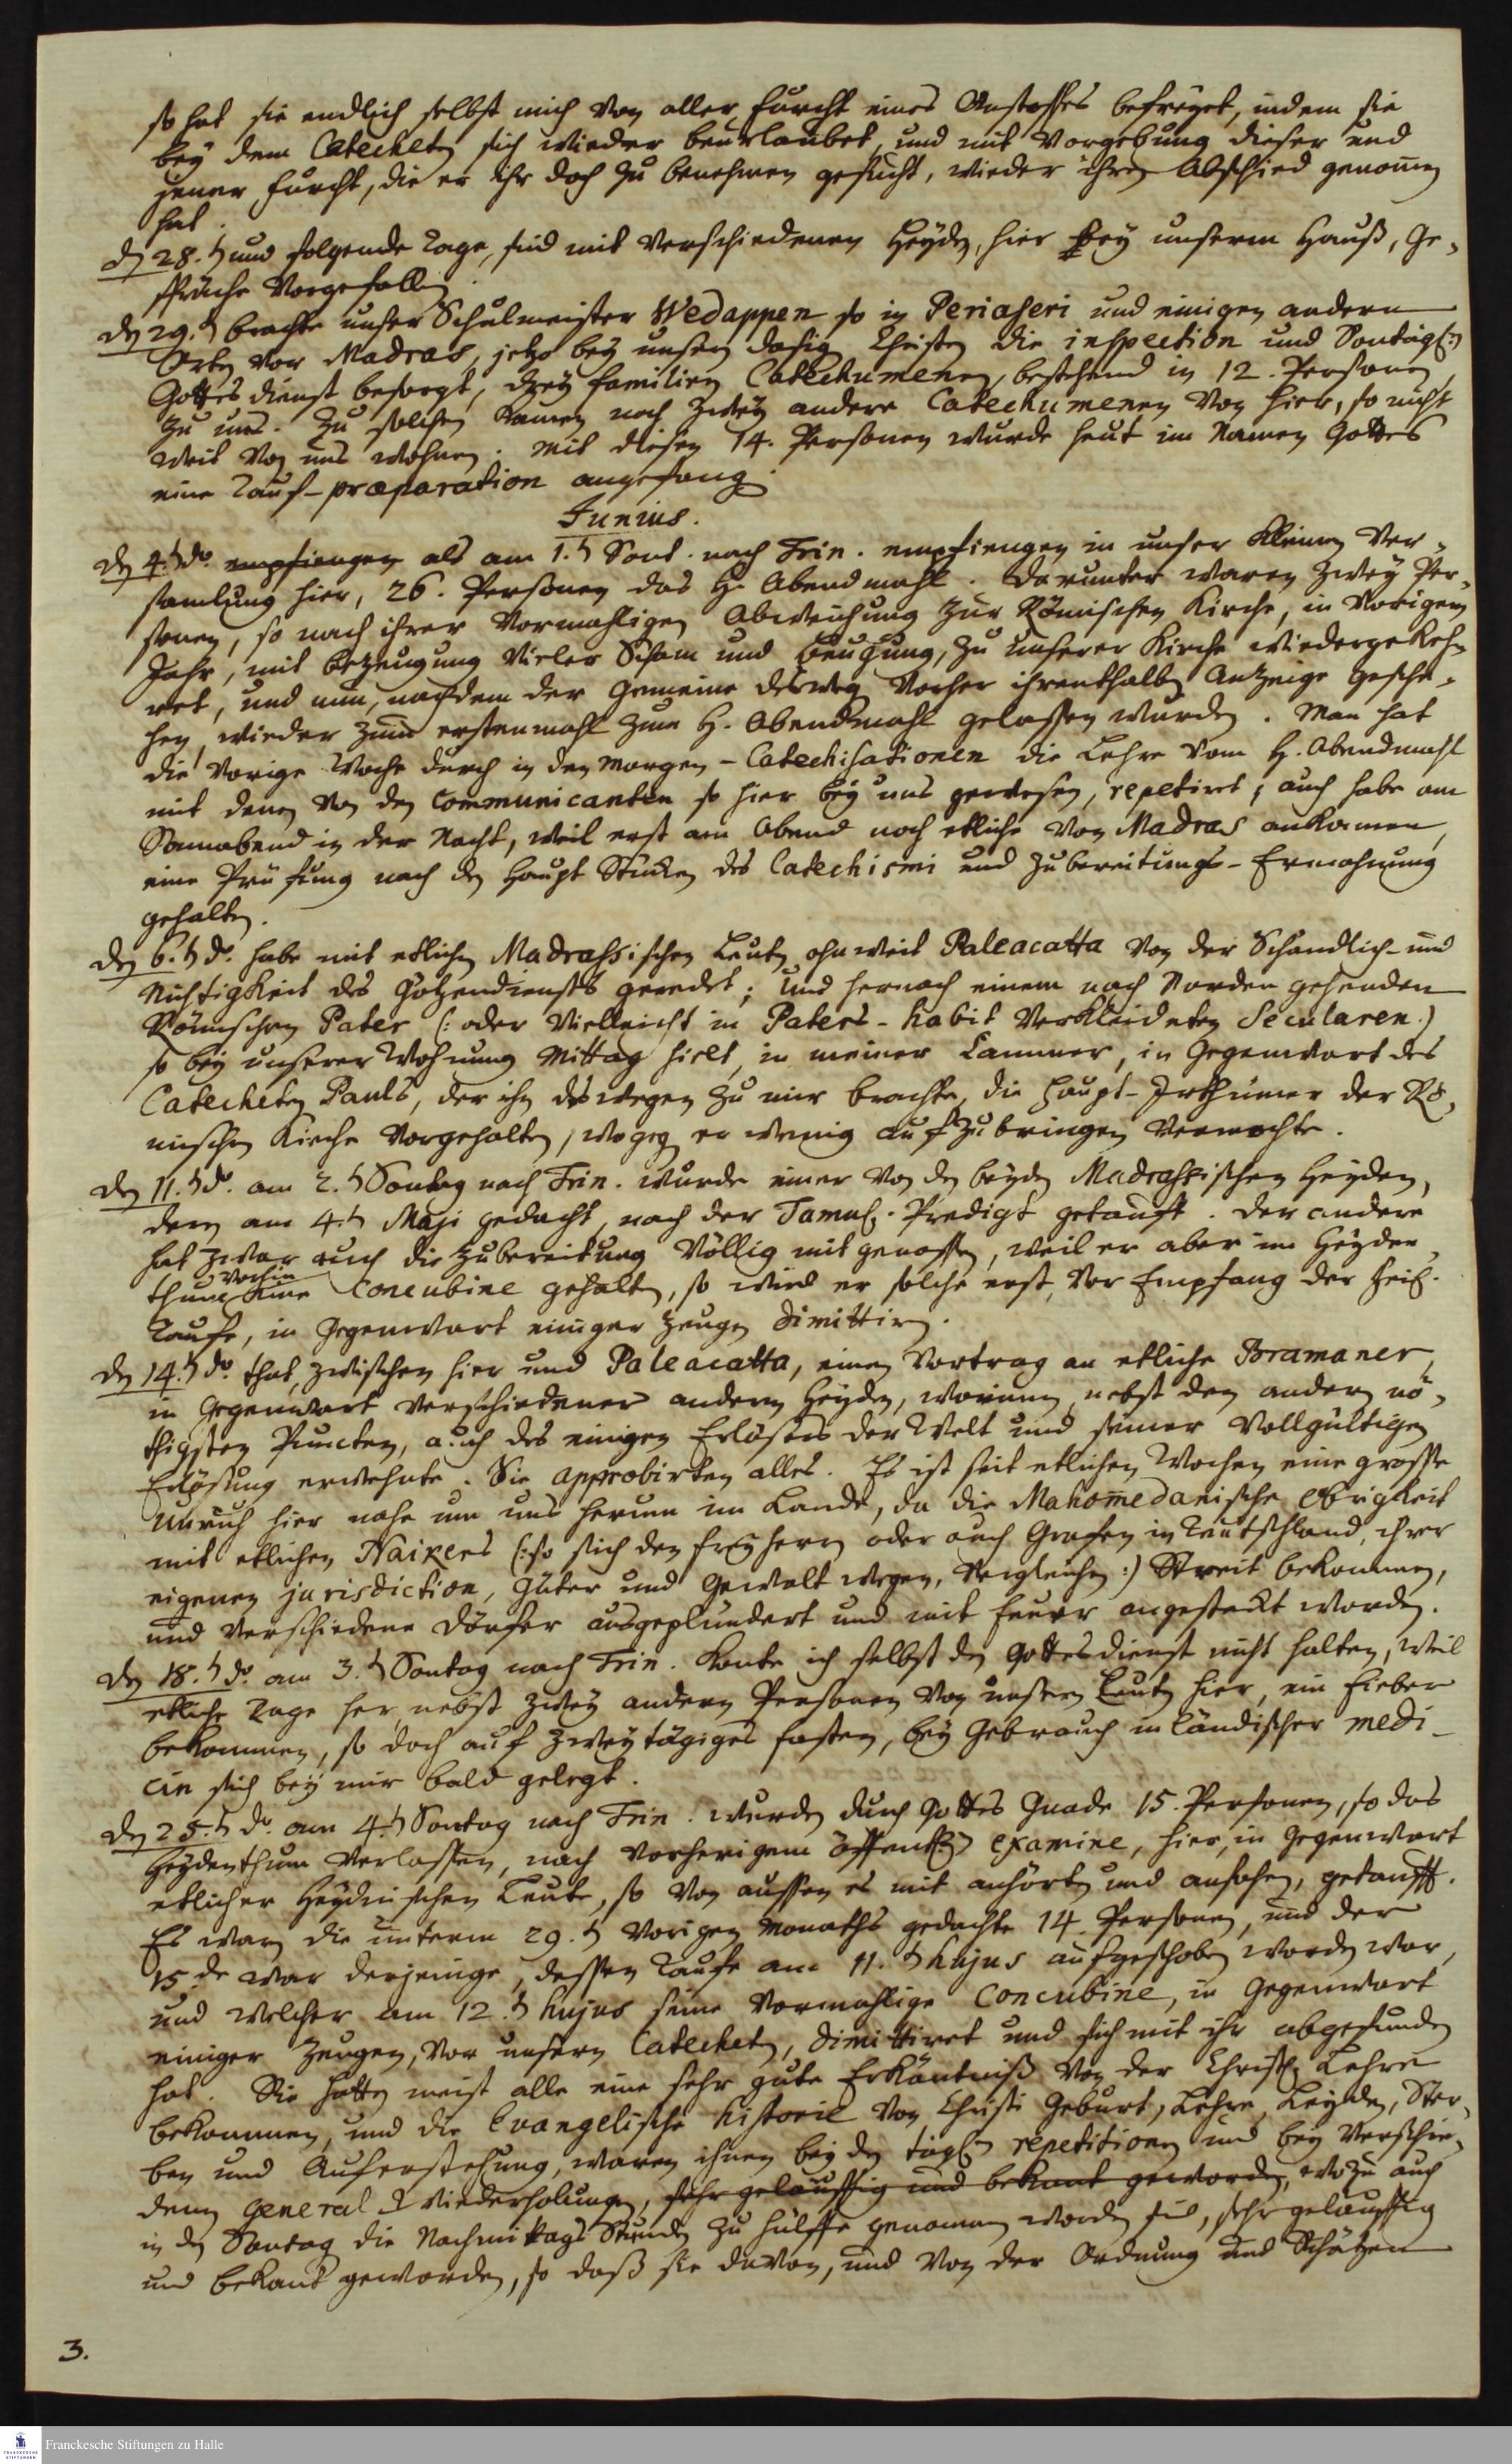 so hat sie endlich selbst mich von aller Furcht eines Anstosses befreyet, indem sie
bey dem Catecheten sich wieder beurlaubet, und mit Vorgebung dieser und
jener Furcht, die er ihr doch zu benehmen gesucht, wieder ihren Abschied genom̄en
hat.
den 28.t und folgende Tage, sind mit verschiedenen Heyden, hier bey unserm Hauß, Ge-
spräche vorgefallen.
den 29.t brachte unser Schulmeister Wedappen so in Periaseri und einigen andern
Orten vor Madras, jetzo bey unsern dasigen Christen die inspection und Sontägl:
Gottesdienst besorgt, drey Familien Catechumenen, bestehend in 12. Personen,
zu uns. Zu solchen kamen noch zwey andere Catechumenen von hier, so nicht
weit von uns wohnen. Mit diesen 14. Personen wurde heut im Namen Gottes
eine Tauf-præparation angefangen.
Junius.
den 4.t do. empfiengen als am 1.t Sont. nach Trin. empfiengen in unser kleinen Ver-
samlung hier, 26. Personen das H. Abendmahl. Darunter waren zwey Per-
sonen, so nach ihrer vormahligen Abweichung zur Römischen Kirche, in vorigem
Jahr, mit Bezeugung vieler Scham und Beugung, zu unserer Kirche wiedergekeh-
ret, und nun, nachdem der Gemeine deswegen vorher ihrenthalben Anzeige gesche-
hen, wieder zum erstenmahl zum H. Abendmahl gelassen wurden. Man hat
die vorige Woche durch in den Morgen-Catechisationen die Lehre vom H. Abendmahl
mit denen von den Communicanten so hier bey uns gewesen, repetiret; auch habe am
Sonnabend in der Nacht, weil erst am Abend noch etliche von Madras ankamen,
eine Prüfung nach den Haupt Stücken des Catechismi und Zubereitungs-Ermahnung
gehalten.
den 6.t do. habe mit etlichen Madrassischen Leuten ohnweit Paleacatta von der Schändlich- und
Nichtigkeit des Götzendiensts geredet; und hernach einem nach Norden gehenden
Römischen Pater (: oder vielleicht in Paters-habit verkleideten Secularen :)
so bey unserer Wohnung Mittag hielt, in meiner Cammer, in Gegenwart des
Catecheten Pauls, der ihn deswegen zu mir brachte, die Haupt-Irthümer der Rö-
mischen Kirche vorgehalten, wogegen er wenig aufzubringen vermochte.
den 11.t do. am 2.t Sontag nach Trin. wurde einer von den beyden Madrassischen Heyden,
deren am 4.t Maji gedacht, nach der Tamul. Predigt getauft. Der andere
hat zwar auch die Zubereitung völlig mit genossen, weil er aber im Heyden-
vorhin
thum eine Concubine gehalten, so wird er solche erst, vor Empfang der heil.
Taufe, in Gegenwart einiger Zeugen dimittiren.
den 14.t do. that, zwischen hier und Paleacatta, einen Vortrag an etliche Bramaner,
in Gegenwart verschiedener andern Heyden, worinnen nebst den andern nö-
thigsten Puncten, auch des einigen Erlösers der Welt und seiner vollgültigen
Erlösung erwehnte. Sie approbirten alles. Es ist seit etlichen Wochen eine grosse
Unruh hier nahe um uns herum im Lande, da die Mahom̄edanische Obrigkeit
mit etlichen Naikers (: so sich den Freyherrn oder auch Grafen in Teutschland, ihrer
eigenen jurisdiction, Güter und Gewalt wegen, vergleichen :) Streit bekommen,
und verschiedene Dörfer ausgeplündert und mit Feuer angesteckt worden.
den 18.t do. am 3.t Sontag nach Trin. konte ich selbst den Gottesdienst nicht halten, weil
etliche Tage her, nebst zwey andern Personen von unsern Leuten hier, ein Fieber
bekommen, so doch auf zweytägiges Fasten, bey Gebrauch inländischer medi-
cin sich bey mir bald gelegt.
den 25.t do. am 4.t Sontag nach Trin. wurden durch Gottes Gnade 15. Personen, so das
Heydenthum verlassen, nach vorherigem öffentl. examine, hier, in Gegenwart
etlicher Heydnischen Leute, so von aussen es mit anhörten und ansahen, getaufft.
Es waren die unterm 29.t vorigen Monaths gedachte 14. Personen, und der
15.de war derjenige, dessen Taufe am 11.t hujus aufgeschoben worden war,
und welcher am 12.t hujus seine vormahlige Concubine, in Gegenwart
einiger Zeugen, vor unsern Catecheten, dimittiret und sich mit ihr abgefunden
hat. Sie hatten meist alle eine sehr gute Erkäntniß von der Christl. Lehre
bekommen, und die Evangelische Historie von Christi Geburt, Lehre, Leyden, Ster-
ben und Auferstehung, waren ihnen bey den tägl. repetitionen und bey verschie-
denen general Wiederholungen, sehr geläuffig und bekant geworden, wozu auch
in den Sontag die Nachmittags Stunden zu hülffe genommen worden sind, sehr geläuffig
und bekant geworden, so daß sie davon, und von der Ordnung und Schätzen
3.
Franckesche Stiftungen zu Halle